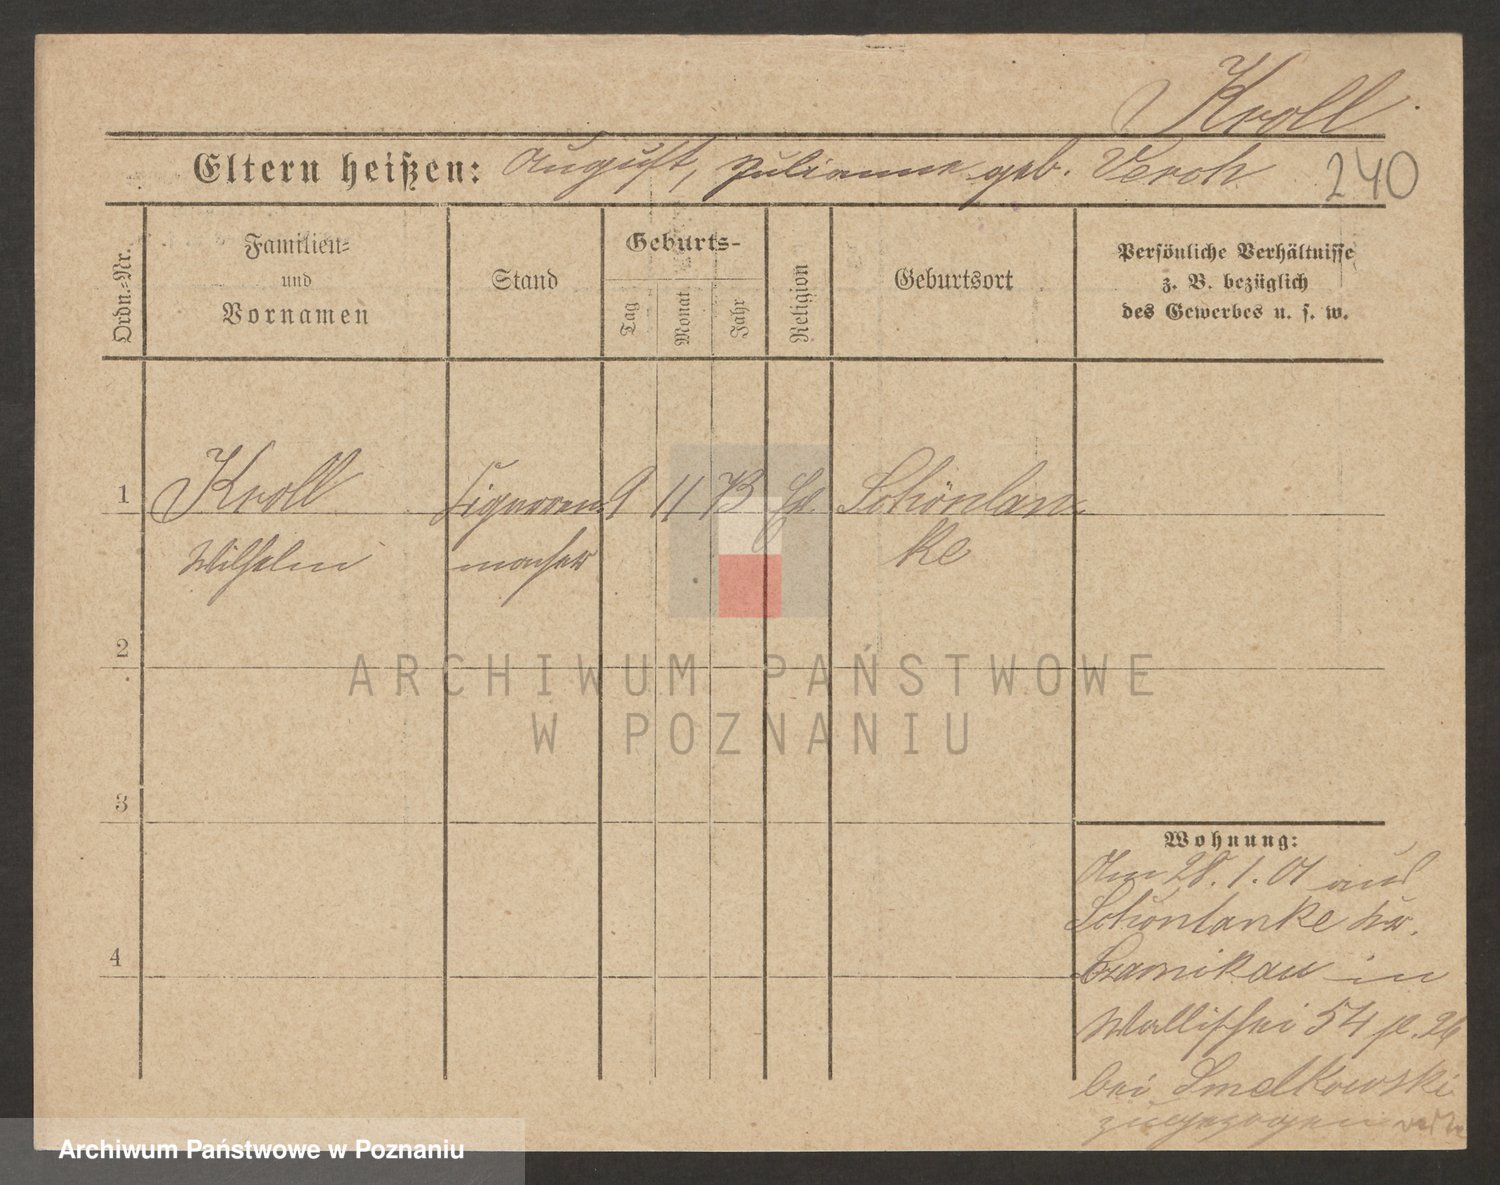 Kroll
Eltern heißen: August, Julianne geb. Veroh 240
Ordn.-Nr.
Familien-
und
Vornamen
Stand
Geburts-
Tag
Monat
Jahr
Religion
Geburtsort
Persönliche Verhältnisse
z. B. bezüglich
des Gewerbes u. s. w.
1 Kroll Cigarren 9 11 73 Schönlan
Wilhelm macher ke
2
ARCHIWUM PAŃSTWOWE
W POZNANIU
3
Wohnung:
Am 28. 1. 01 aus
Schönlanke Kr.
4 Czarnikau in
Wallischei 54 p. 26
bei Smelkowski
zugezogen
Archiwum Państwowe w Poznaniu